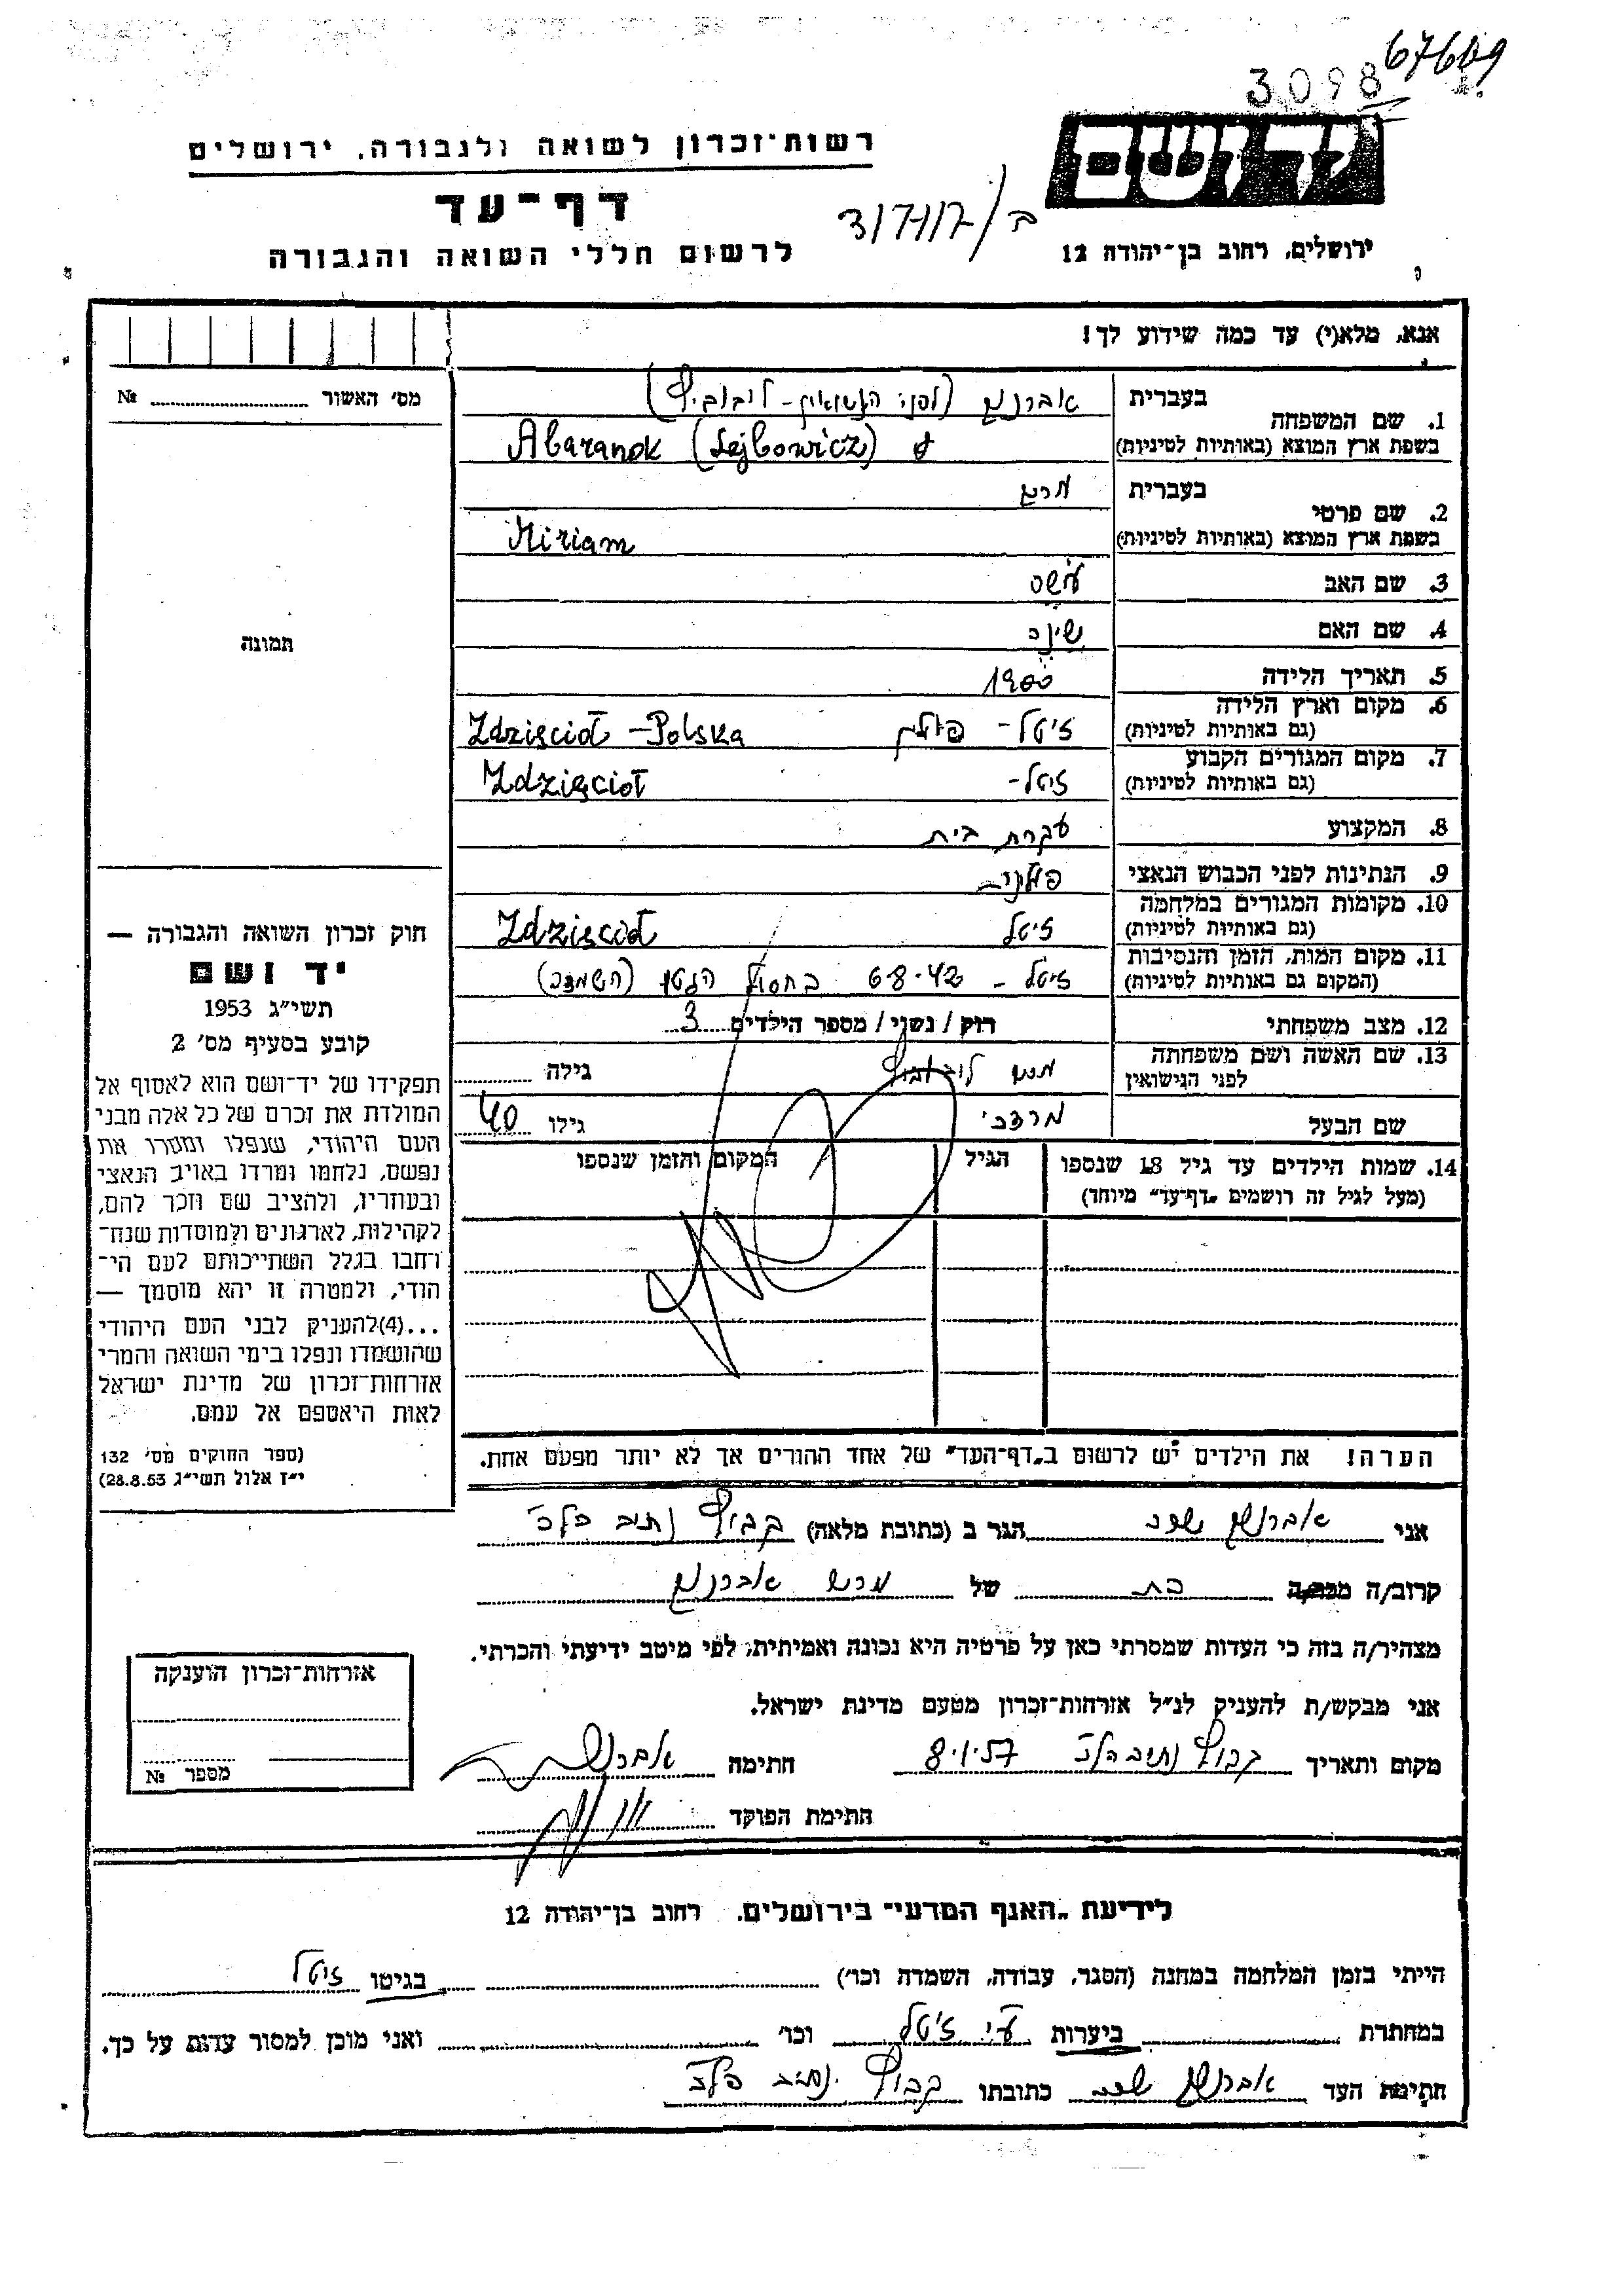 67619
3098
יד ושם
רשות־זכרון לשואה ולגבורה, ירושלים
דף־עד
לרשום חללי השואה והגבורה
ירושלים, רחוב בן־יהודה 12
אנא, מלא(י) עד כמה שידוע לך!
מס' האשור № 
1. שם המשפחה
בעברית
בשפת ארץ המוצא (באותיות לטיניות)
Abaranok (Lejbowicz)
2. שם פרטי
בעברית מרים
בשפת ארץ המוצא (באותיות לטיניות)
Miriam
3. שם האב
4. שם האם
5. תאריך הלידה 1900
6. מקום וארץ הלידה
(גם באותיות לטיניות) ז'יטל - פולין Zdzięcioł - Polska
7. מקום המגורים הקבוע
(גם באותיות לטיניות) ז'יטל - Zdzięcioł
8. המקצוע עקרת בית
9. הנתינות לפני הכבוש הנאצי פולנית
10. מקומות המגורים במלחמה
(גם באותיות לטיניות) ז'יטל Zdzięcioł
11. מקום המות, הזמן והנסיבות
(המקום גם באותיות לטיניות) ז'יטל - 6.8.42 בחסול הגטו (השמדה)
12. מצב משפחתי רוק / נשוי / מספר הילדים 3
13. שם האשה ושם משפחתה
לפני הנישואין גילה
שם הבעל מרדכי גילו 40
14. שמות הילדים עד גיל 18 שנספו
(מעל לגיל זה רושמים „דף־עד" מיוחד)
הגיל
המקום והזמן שנספו
הערה! את הילדים יש לרשום ב„דף־העד" של אחד ההורים אך לא יותר מפעם אחת.
תמונה
חוק זכרון השואה והגבורה —
יד ושם
תשי"ג 1953
קובע בסעיף מס' 2
תפקידו של יד־ושם הוא לאסוף אל
המולדת את זכרם של כל אלה מבני
העם היהודי, שנפלו ומסרו את
נפשם, נלחמו ומרדו באויב הנאצי
ובעוזריו, ולהציב שם וזכר להם,
לקהילות, לארגונים ולמוסדות שנח־
רחבו בגלל השתייכותם לעם הי־
הודי, ולמטרה זו יהא מוסמך —
...(4)להעניק לבני העם היהודי
שהושמדו ונפלו בימי השואה והמרי
אזרחות־זכרון של מדינת ישראל
לאות היאספם אל עמם.
(ספר החוקים מס' 132
י"ז אלול תשי"ג 28.8.53)
אני הגר ב (כתובת מלאה) קבוץ נתיב הל"ה
קרוב/ה בת של
מצהיר/ה בזה כי העדות שמסרתי כאן על פרטיה היא נכונה ואמיתית, לפי מיטב ידיעתי והכרתי.
אני מבקש/ת להעניק לנ"ל אזרחות־זכרון מטעם מדינת ישראל.
מקום ותאריך קבוץ נתיב הל"ה 8.1.57 חתימה
חתימת הפוקד
אזרחות־זכרון הוענקה
מספר №
לידיעת „האגף המדעי" בירושלים, רחוב בן־יהודה 12
הייתי בזמן המלחמה במחנה (הסגר, עבודה, השמדה וכו') בגיטו ז'יטל
במחתרת ביערות ע"י ז'יטל וכו' ואני מוכן למסור עדות על כך.
חתימת העד כתובתו קבוץ נתיב הל"ה